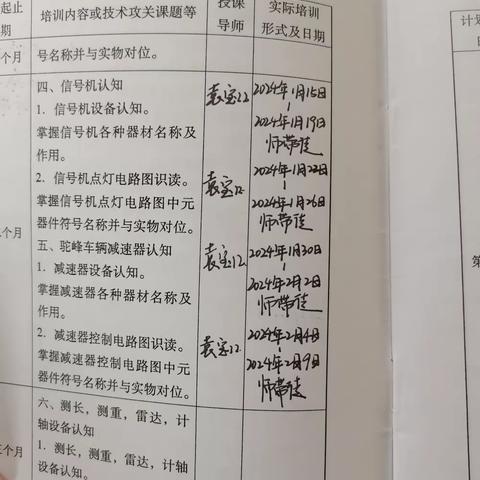 起止
期
培训内容或技术攻关课题等
授课
导师
实际培训
形式及日期
个月
号名称并与实物对位。
四、信号机认知
1. 信号机设备认知。
掌握信号机各种器材名称及
作用。
2024年1月15日
2024年1月19日
师带徒
2. 信号机点灯电路图识读。
掌握信号机点灯电路图中元
器件符号名称并与实物对位。
2024年1月22日
2024年1月26日
师带徒
个月
五、驼峰车辆减速器认知
1. 减速器设备认知。
掌握减速器各种器材名称及
作用。
2024年1月30日
2024年2月2日
师带徒
2. 减速器控制电路图识读。
掌握减速器控制电路图中元
器件符号名称并与实物对位。
2024年2月4日
2024年2月9日
师带徒
个月
六、测长，测重，雷达，计
轴设备认知
1. 测长，测重，雷达，计轴
设备认知。
计划
第